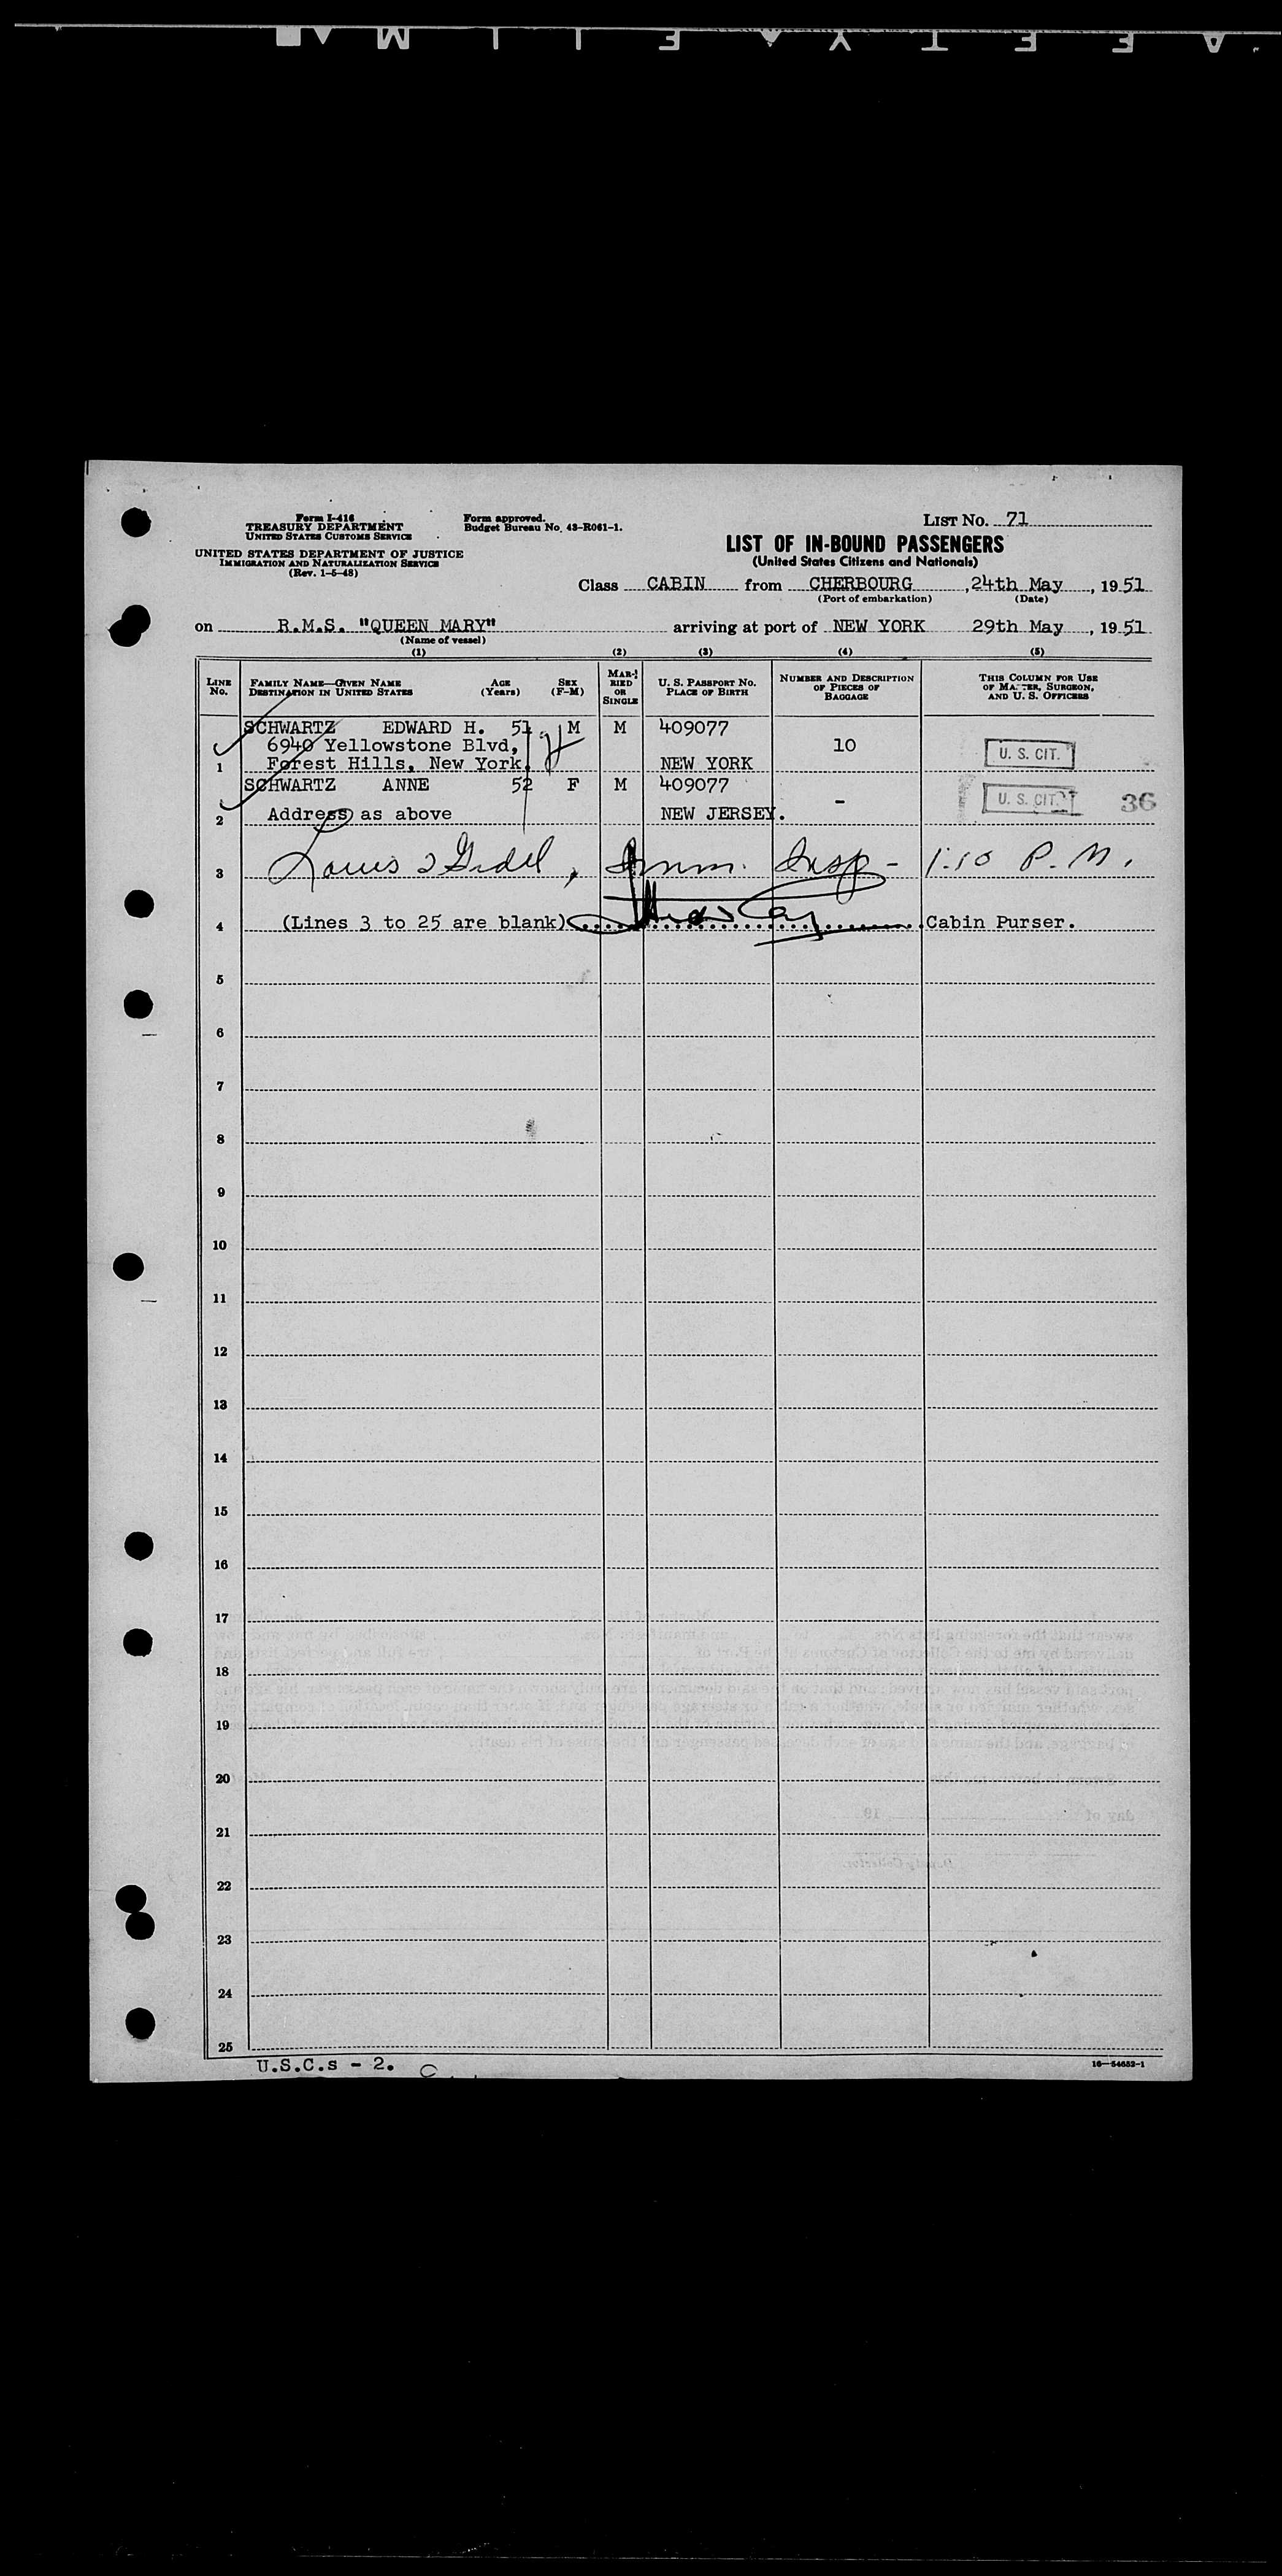 SAFETY FILM
Form I-416
TREASURY DEPARTMENT
UNITED STATES CUSTOMS SERVICE
Form approved.
Budget Bureau No. 43-R061-1.
UNITED STATES DEPARTMENT OF JUSTICE
IMMIGRATION AND NATURALIZATION SERVICE
(Rev. 1-5-48)
LIST NO. 71
LIST OF IN-BOUND PASSENGERS
(United States Citizens and Nationals)
Class CABIN from CHERBOURG, 24th May, 1951
(Port of embarkation) (Date)
on R.M.S. "QUEEN MARY" arriving at port of NEW YORK 29th May, 1951
(Name of vessel)
(1) (2) (3) (4) (5)
LINE NO. FAMILY NAME—GIVEN NAME DESTINATION IN UNITED STATES AGE (Years) SEX (F-M) MARRIED OR SINGLE U. S. PASSPORT NO. PLACE OF BIRTH NUMBER AND DESCRIPTION OF PIECES OF BAGGAGE THIS COLUMN FOR USE OF MASTER, SURGEON, AND U. S. OFFICERS
SCHWARTZ EDWARD H. 51 M M 409077
6940 Yellowstone Blvd, 10
1 Forest Hills, New York NEW YORK U. S. CIT.
SCHWARTZ ANNE 52 F M 409077
- U. S. CIT. 36
2 Address as above NEW JERSEY.
3 Louis Imm. Insp - 1:10 P.M.
4 (Lines 3 to 25 are blank) Cabin Purser.
5
6
7
8
9
10
11
12
13
14
15
16
17
18
19
20
21
22
23
24
25
U.S.C.s - 2.
16—54652-1